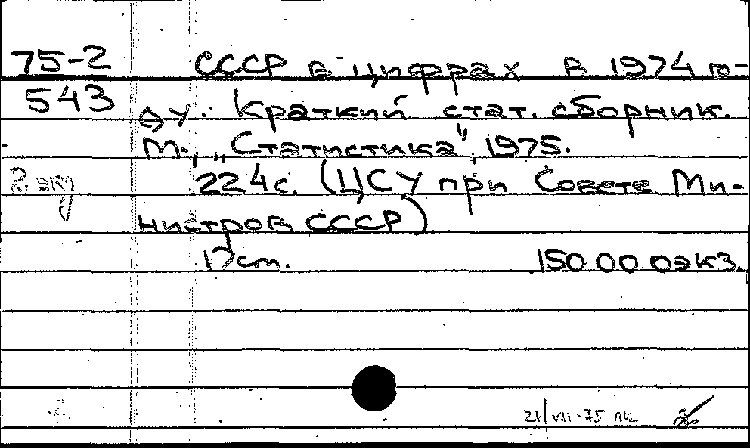 75-2 СССР в цифрах в 1974 го-
543 ду. Краткий стат. сборник.
М., „Статистика", 1975.
2 экз 224с. (ЦСУ при Совете Ми-
нистров СССР)
17см. 150000экз.
21/VII-75